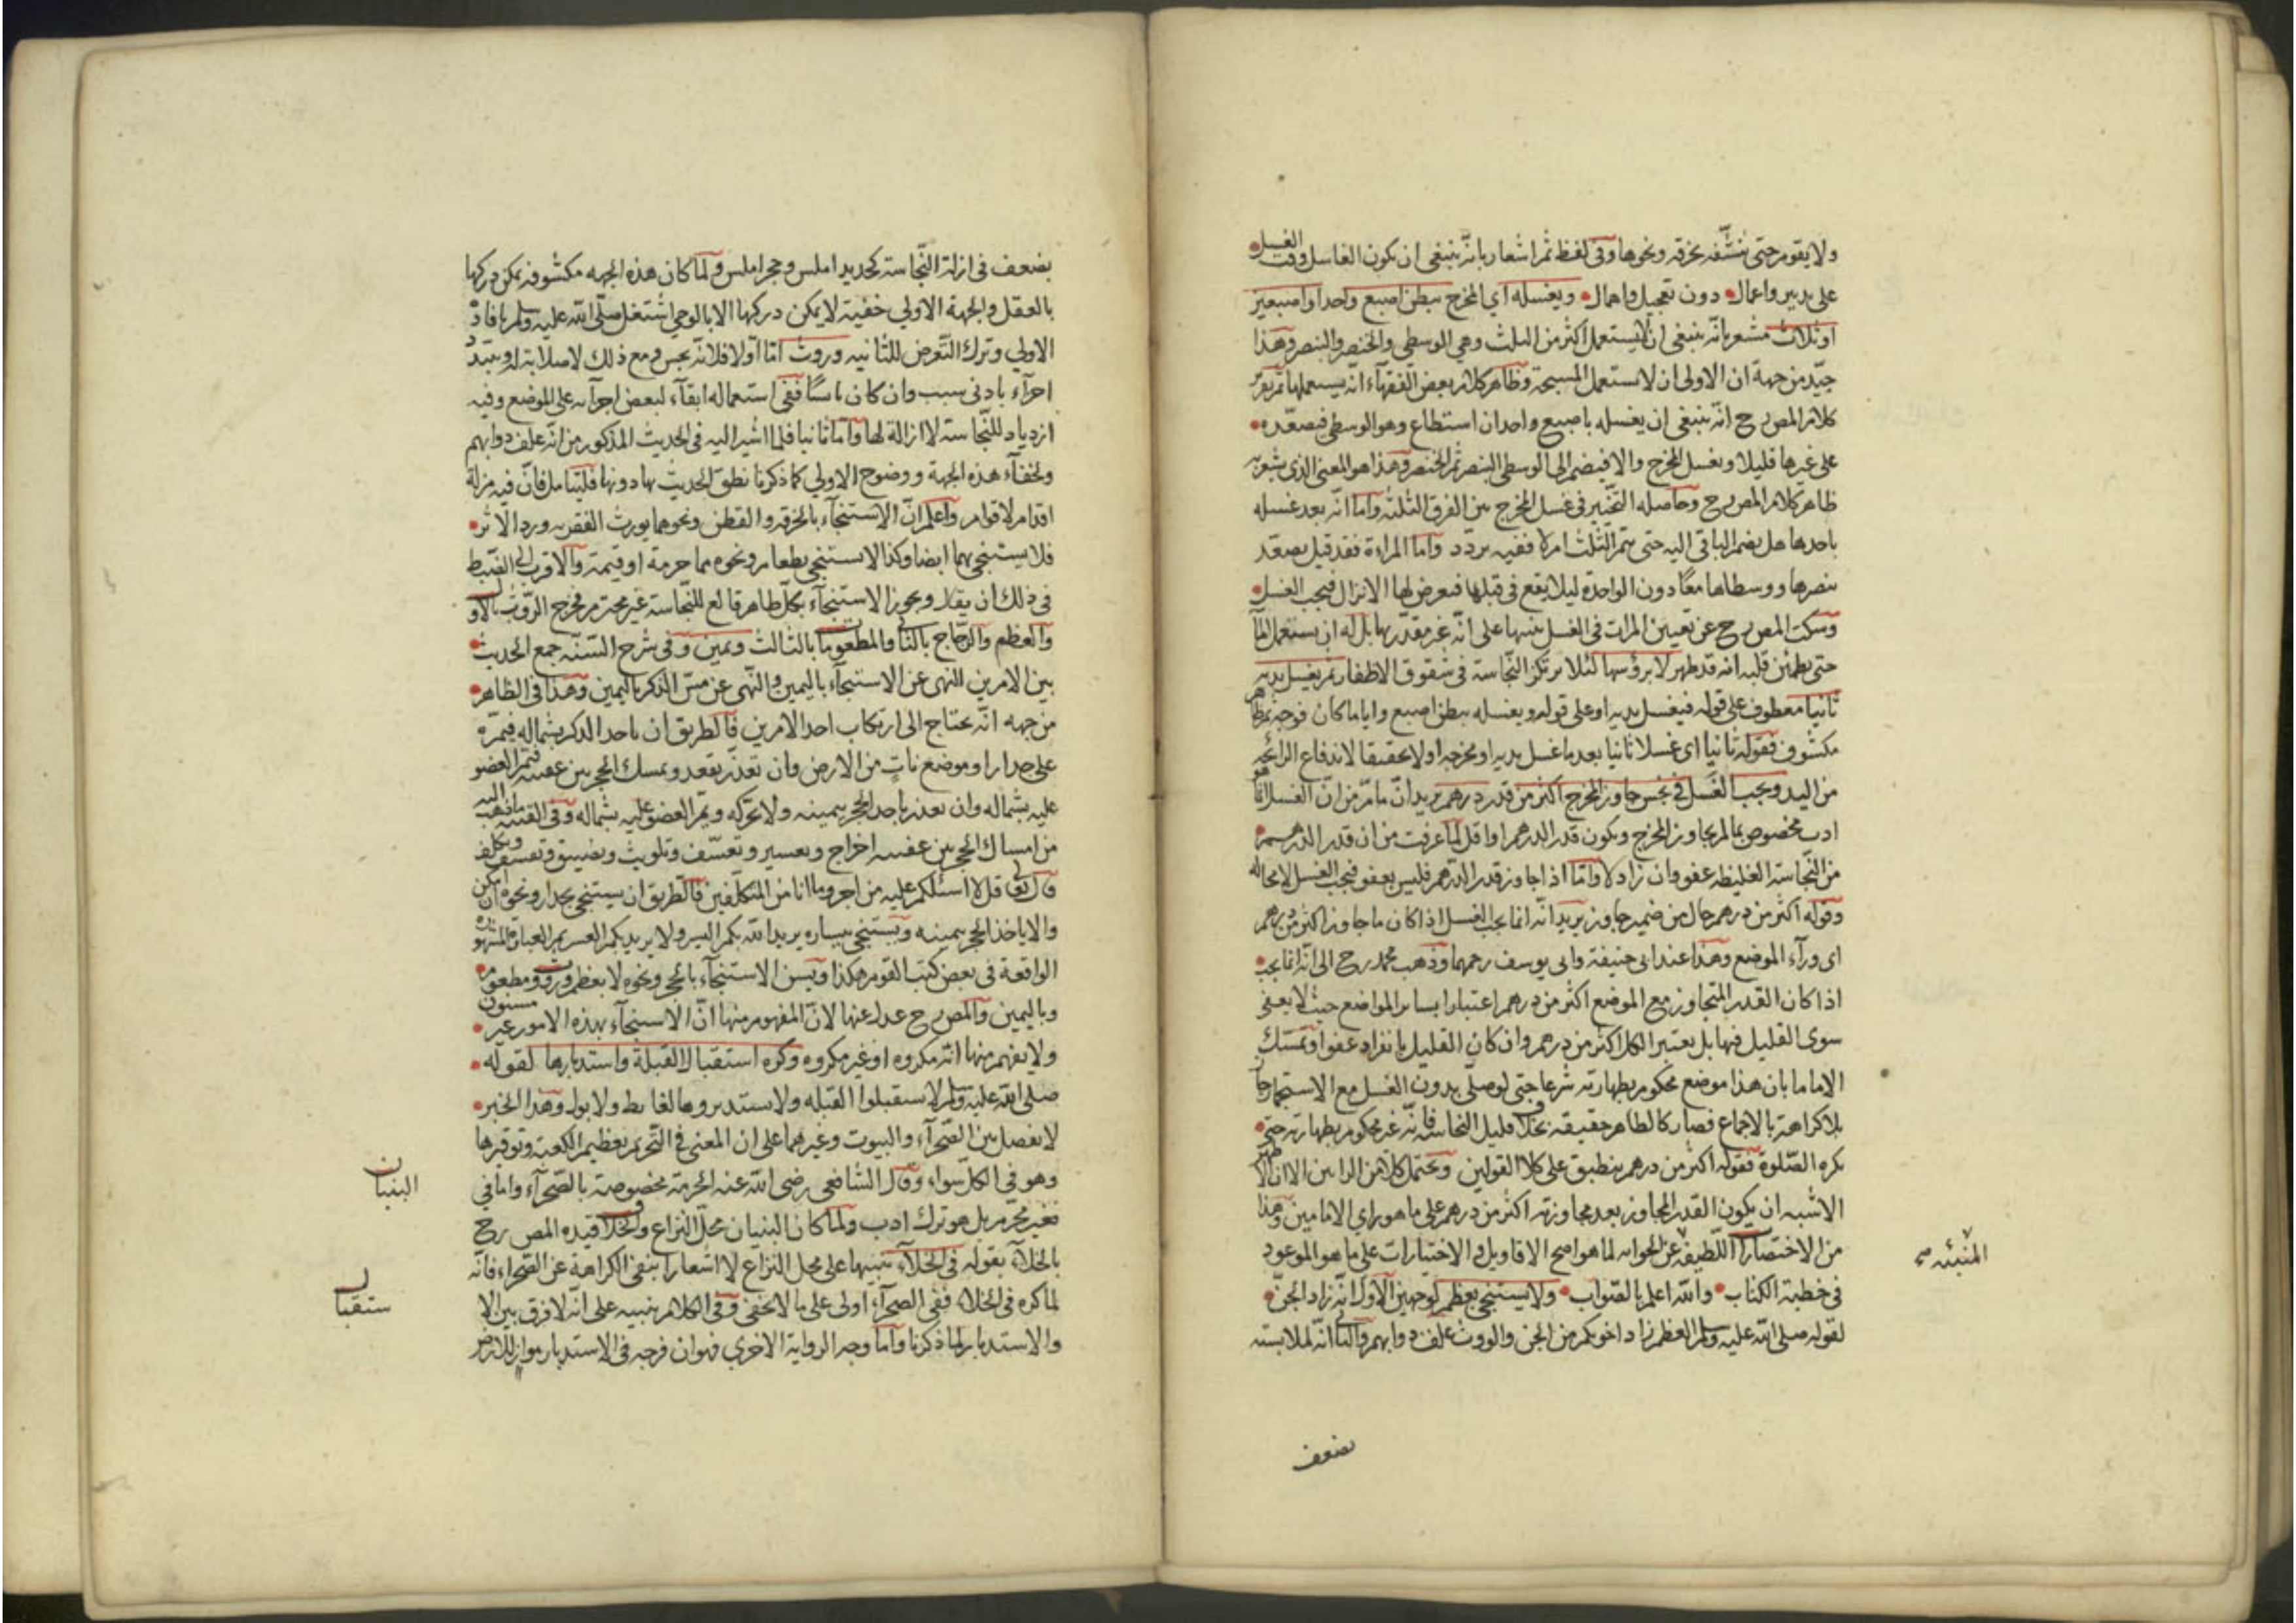 ولا يقوم حتى ينشّفه بخرقه ونحوها وفى لفظ ثم اشعار بانّه ينبغى ان يكون الغاسل وقت الغسل
على يديه واعمال دون تعجيل واهمال ويغسله اي المخرج ببطن اصبع واحد او اصبعين
او ثلاث مشعر بانّه ينبغى ان لا يستعمل اكثر من الثلث وهي الوسطى والخنصر والبنصر وهذا
جيّد من جهة ان الاولى ان لا يستعمل المسبحة وظاهر كلام بعض الفقهاء انّه يستعملها ثم
كلام المص رح انّه ينبغى ان يغسله باصبع واحد ان استطاع وهو الوسطى فيصعّده
على غيرها قليلا ويغسل المخرج والا فيضم الى الوسطى البنصر ثم الخنصر وهذا هو المعنى الذى يشعر به
ظاهر كلام المص رح وحاصله التخيير فى غسل المخرج بين الفرق الثلثه واما انّه بعد غسله
باحدها هل يضم الباقى اليه حتى يتم الثلث ام لا ففيه تردّد واما المراءة فقد قيل يصعّد
بنصرها ووسطاها معًا دون الواحدة ليلا يقع فى قبلها فيعرض لها الانزال فيجب الغسل
وسكت المص رح عن تعيين المرات فى الغسل تنبيها على انّه غير مقدّر بها بل له ان يستعمل الماء
حتى يطمئن قلبه انه قد طهر لا برؤسها لئلا يرتكز النجاسة فى شقوق الاظفار ثم يغسل يديه
ثانيا معطوف على قوله فيغسل يديه او على قوله ويغسله ببطن اصبع وايا ما كان فوجهه ظاهر
مكشوف فقوله ثانيا اى غسلا ثانيا بعد ما غسل يديه او مخرجه اولا تحقيقا لاندفاع الرائحه
من اليد ويجب الغسل فى نجس جاوز المخرج اكثر من قدر درهم يريد انّ ما مرّ من انّ الغسل انّما هو
ادب مخصوص بما لم يجاوز المخرج ويكون قدر الدرهم او اقل لما عرفت من ان قدر الدرهم
من النجاسة الغليظه عفو وان زاد لا وامّا اذا جاوز قدر الدرهم فليس بعفو فيجب الغسل لا محاله
وقوله اكثر من درهم حال من ضمير جاوز يريد انّه انما يجب الغسل اذا كان ما جاوز اكثر من درهم
اى وراء الموضع وهذا عند ابى حنيفة وابى يوسف رحمهما وذهب محمد رح الى انّه انما يجب
اذا كان القدر المتجاوز مع الموضع اكثر من درهم اعتبارا بسائر المواضع حيث لا يعفى
سوى القليل فيها بل يعتبر الكل اكثر من درهم وان كان القليل بانفراد عفوا وتمسّك
الاماما بان هذا موضع محكوم بطهارته شرعا حتى لو صلّى بدون الغسل مع الاستجمار جاز
بلا كراهة بالاجماع فصار كالطاهر حقيقة بخلاف قليل النجاسة فانّه غير محكوم بطهارته حتى
يكره الصّلوة فقوله اكثر من درهم ينطبق على كلا القولين ويحتمل كلا من الرايين الا ان الاظهر
الاشبه ان يكون القدر المجاوز بعد مجاوزته اكثر من درهم على ما هو راي الامامين وهذا
من الاختصارات اللّطيفة عن الحوايه لما هو اصح الاقاويل والاختيارات على ما هو الموعود
المنبئه صح
فى خطبة الكتاب والله اعلم بالصّواب ولا يستنجى بعظم لوجهين الاوّل انّه زاد الجنّ
لقوله صلى الله عليه وسلم العظم زاد اخوكم من الجن والروث علف دوابهم والثانى انّه لملابسته
يضعف
يضعف فى ازلة النّجاسة كحديد املس وحجر املس ولما كان هذه الجهه مكشوفه يمكن دركها
بالعقل والجهة الاولي خفية لا يمكن دركها الا بالوحي اشتغل صلّى الله عليه وسلم بافادة
الاولي وترك التّعرض للثانيه وروث امّا اوّلا فلانّه نجس ومع ذلك لا صلابة له ويتبدّد
اجزاء بادنى سبب وان كان يابسًا ففى استعماله ابقاء لبعض اجزائه على الموضع وفيه
ازدياد للنّجاسة لا ازالة لها وامّا ثانيا فلما اشير اليه فى الحديث المذكور من انّه علف دوابهم
ولخفاء هذه الجهة ووضوح الاولي كما ذكرنا نطق الحديث بها دونها فليتامل فانّ فيه مزلة
اقدام لاقوام واعلم انّ الاستنجاء بالخرقه والقطن ونحوهما يورث الفقر به ورد الاثر
فلا يستنجى بهما ايضا وكذا لا يستنجى بطعام ونحوه مما حرمة او قيمة والاقرب الى الضّبط
فى ذلك ان يقال ويجوز الاستنجاء بكل طاهر قالع للنّجاسة غير محترم فخرج الرّوث بالاول
والعظم والزّجاج بالثانى والمطعوم بالثالث ويمين وفى شرح السّنّه جمع الحديث
بين الامرين النهى عن الاستنجاء باليمين والنّهى عن مسّ الذكر باليمين وهذا فى الظاهر
من جهه انّه يحتاج الى ارتكاب احد الامرين فالطريق ان ياخد الذكر بشماله فيمرّه
على جدار او موضع ناتٍ من الارض وان تعذّر يقعد ويمسك الحجر بين عقبيه فيمر العضو
عليه بشماله وان تعذر ياخذ الحجر بيمينه ولا يحرّكه ويمر العضو عليه بشماله وفى القنيه ما ذهب اليه
من امساك الحجر بين عقبيه اخراج وتعسير وتعسّف وتلويث وتضييق وتعسف وتكلف
قال تعالى قل لا اسئلكم عليه من اجر وما انا من المتكلّفين فالطريق ان يستنجى بجدار ونحوه ان امكن
والا ياخذ الحجر بيمينه ويستنجى بيساره يريد الله بكم اليسر ولا يريد بكم العسر ثم العبارة المشهورة
الواقعة فى بعض كتب القوم هكذا ويسن الاستنجاء بالحجر ونحوه لا بعظم وروث ومطعوم
وباليمين والمص رح عدل عنها لانّ المفهوم منها انّ الاستنجاء بهذه الامور غير مسنون
ولا يفهم منها انّه مكروه او غير مكروه وكره استقبال القبلة واستدبارها لقوله
صلى الله عليه وسلم لا تستقبلوا القبله ولا تستدبروها لغايط ولا بول وهذا الخبر
لا يفصل بين الصّحراء والبيوت وغيرهما على ان المعنى فى التّحريم تعظيم الكعبة وتوقيرها
وهو فى الكل سواء وقال الشافعى رضى الله عنه الحرمة مخصوصة بالصّحراء واما فى
البنيان
فغير محرّم بل هو ترك ادب ولما كان البنيان محلّ النزاع والخلاف قيده المص رح
بالخلاء بقوله فى الخلاء تنبيها على محل النزاع لا اشعارا بنفى الكراهة عن الصّحراء فانّه
لما كره فى الخلاء ففى الصحراء اولى على ما لا يخفى وفى الكلام تنبيه على انّه لا فرق بين الا
ستقبال
والاستدبار لما ذكرنا واما وجه الرواية الاخري فهو ان فرجه فى الاستدبار مواز للارض